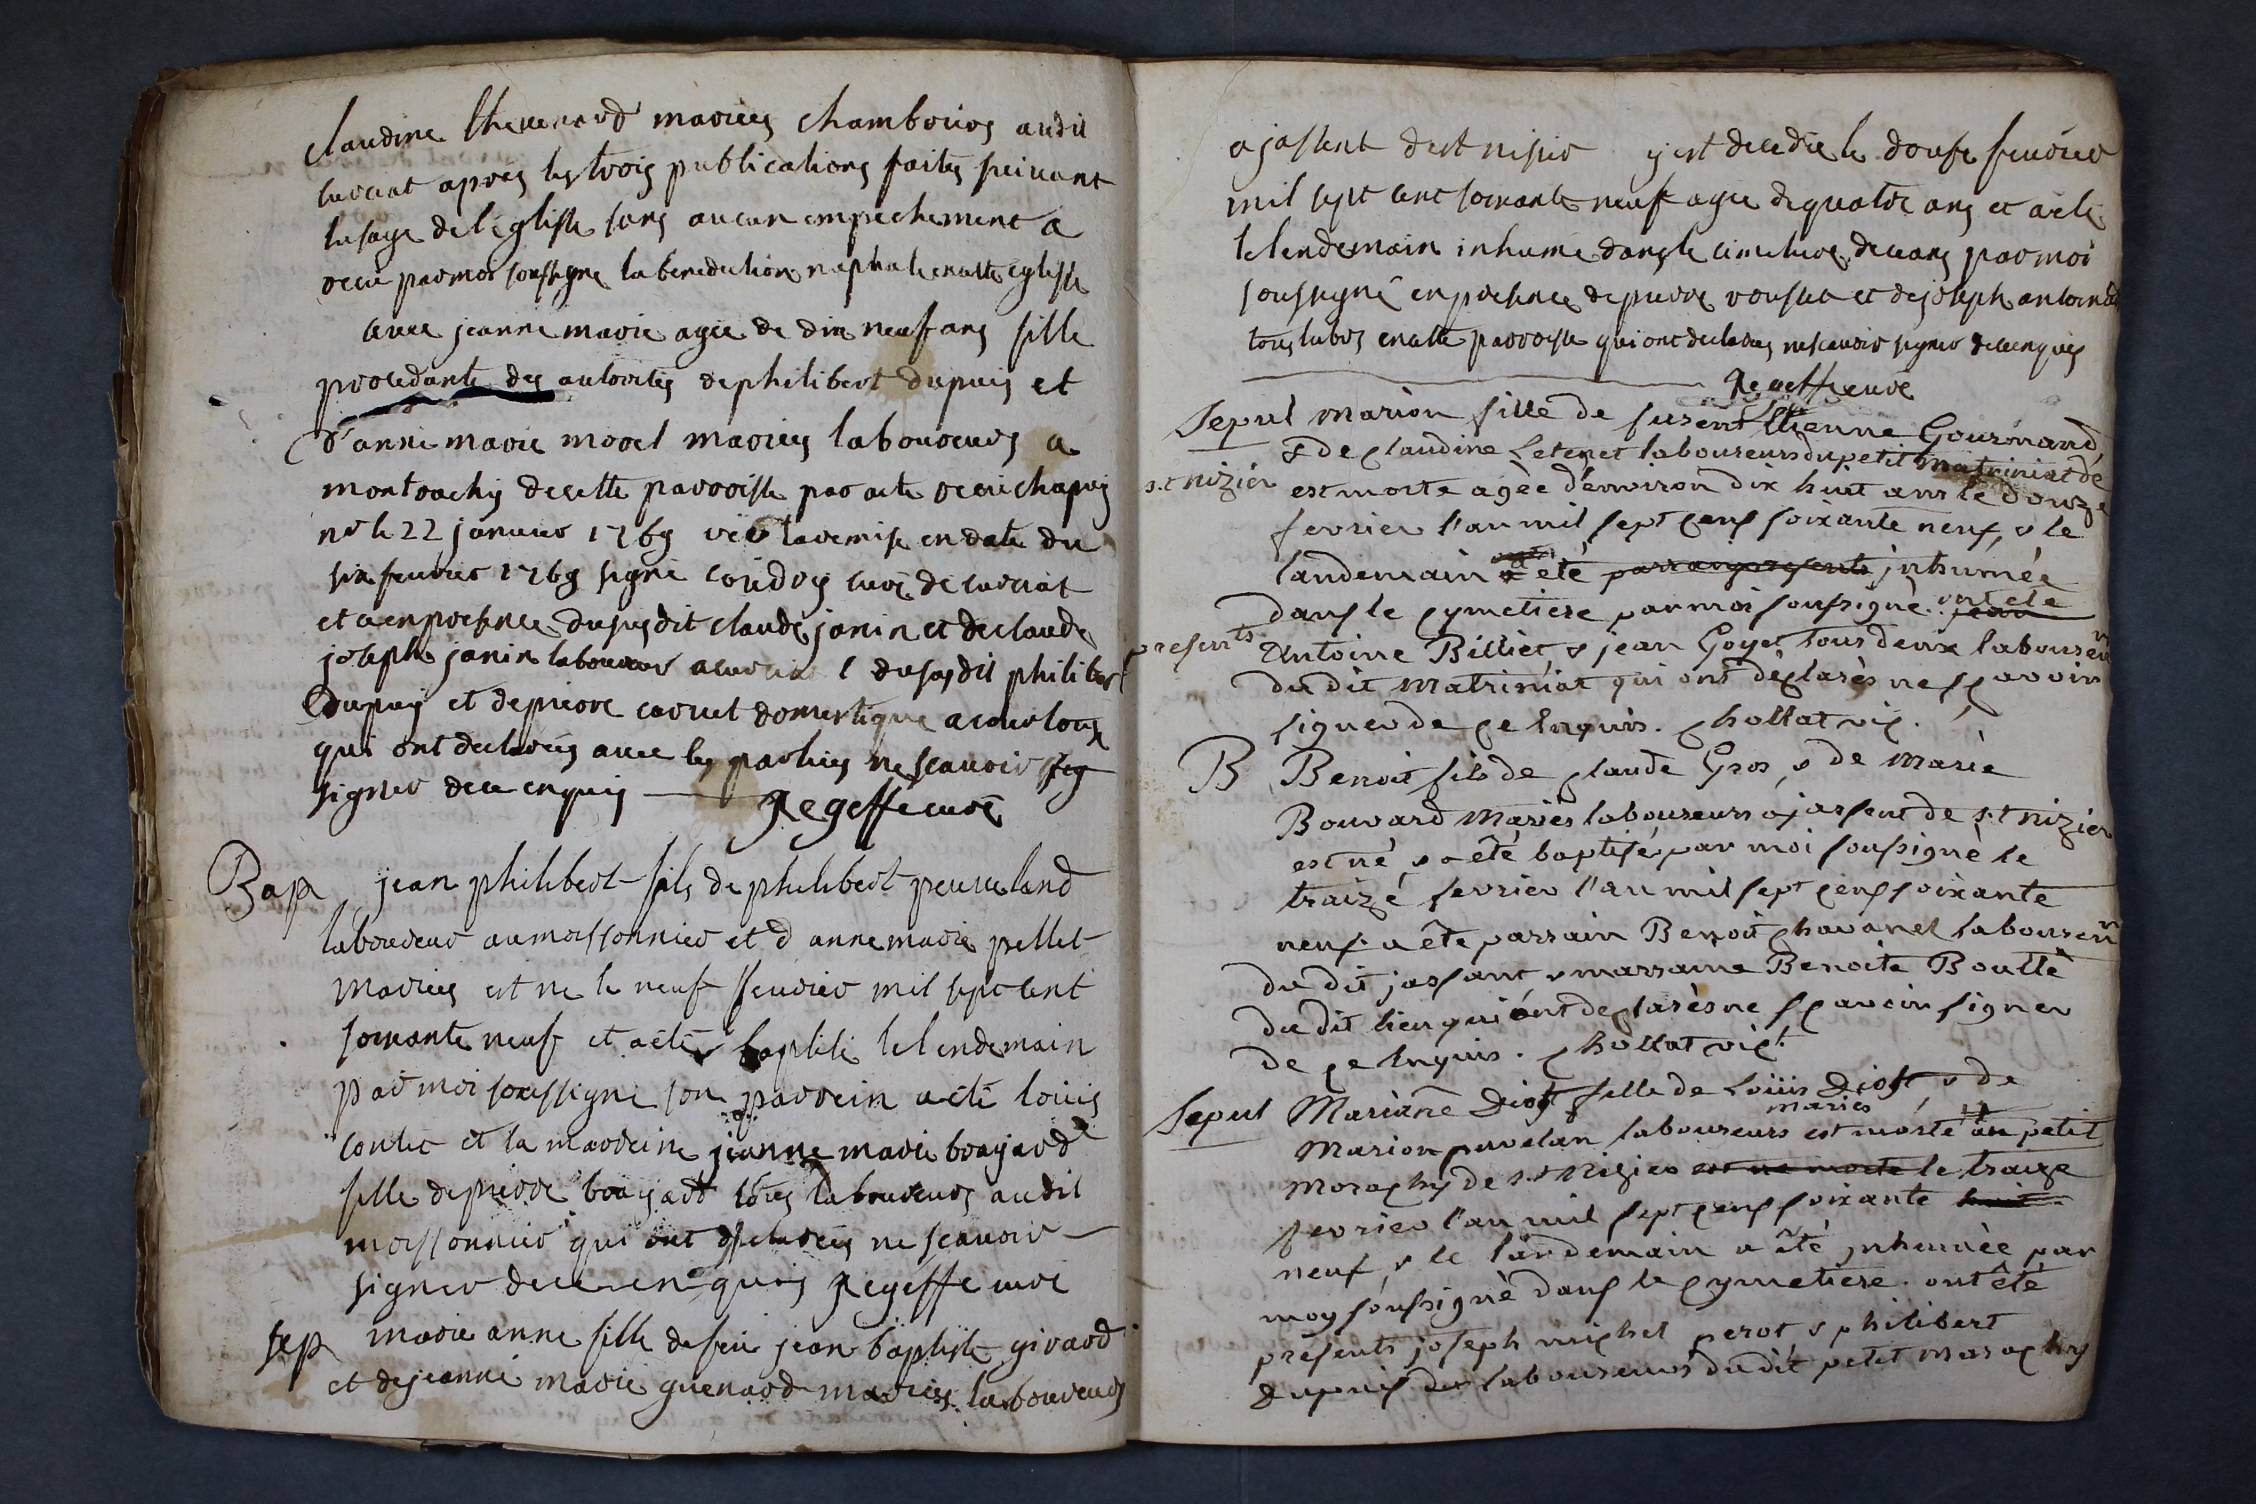 claudine thevenard mariés chambrios audit
curciat après les trois publications faites suivant
lusage de l'eglisse sans aucun empechement a
recu par moi soussigne la benediction nuptiale en cette eglisse
avec jeanne marie agee de dix neuf ans fille
procedante des autorités de philibert dupuis et
d'anne marie morel mariés laboureurs a
montrachy de cette parroisse par acte recu chapuy
nre le 22 janvier 1769 vëu la remise en date du
six fevrier 1769 signé curé de curciat
et a en presence du susdit claude janin et de claude
joseph janin laboureur a curciat du susdit philibert
dupuy et de pierre carruet domestique a cour tous
qui ont declarés avec les parties ne scavoir sig
signer de ce enquis
Regeffe curé
Bap jean philibert fils de philibert peuveland
laboureur au moissonnier et d anne marie pellet
mariés est ne le neuf fevrier mil sept cent
soixante neuf et a eté baptisé le lendemain
par moi soussigné son parrein a eté louis
contet et la marreine jeanne marie brayard
fille de pierre brayard tous laboureurs audit
moissonnier qui ont declarés ne scavoir
signer de ce enquis Regeffe curé
sep marie anne fille de feu jean baptiste girard
et de jeanne marie guenard mariés laboureurs
a jassent de st nisier y est decedée le douse fevrier
mil sept cent soixante neuf agée de quatre ans et a eté
le lendemain inhumé dans le cimetiere de ceans par moi
soussigné en presence de pierre rousset et de joseph antoine
tous labrs en cette parroisse qui ont declarés ne scavoir signer de ce enquis
Regeffe curé
Sepul marion fille de Ettienne Gourmand
& de claudine Letenet laboureurs du petit matriniat de
s.t nizier est morte agèe d'environ dix huit ans le douze
fevrier l'an mil sept cens soixante neuf, & le
landemain a eté inhumée
dans le cymetiere par moi soussigné. ont eté
presents Antoine Billiet & jean Goyet tous deux laboureurs
du dit matriniat qui ont dèclarès ne sçavoir
signer de ce enquis. chollat vic.
B Benoit fils de claude Gros & de Marie
Bouvard mariès laboureurs a jassent de s.t nizier
est né & a été baptisé par moi soussigné le
traizé fevrier l'an mil sept cens soixante
neuf. a ête parrain Benoit chavanel laboureur
du dit jassant & marraine Benoite Boullé
du dit lieu qui ont declarès ne sçavoir signer
de ce enquis. chollat vic.
Sepul Mariane Diot fille de Loüis Diot, & de
Marion pavelan mariés laboureurs est morté au petit
Morachy de s.t Nizier est ne morte le traize
fevrier l'an mil sept cens soixante huit
neuf, & le landemain a êté inhumée par
moy soussigné dans le cymetiere. ont êté
présents joseph michel perot & philibert
Dupuis laboureurs du dit petit marachy